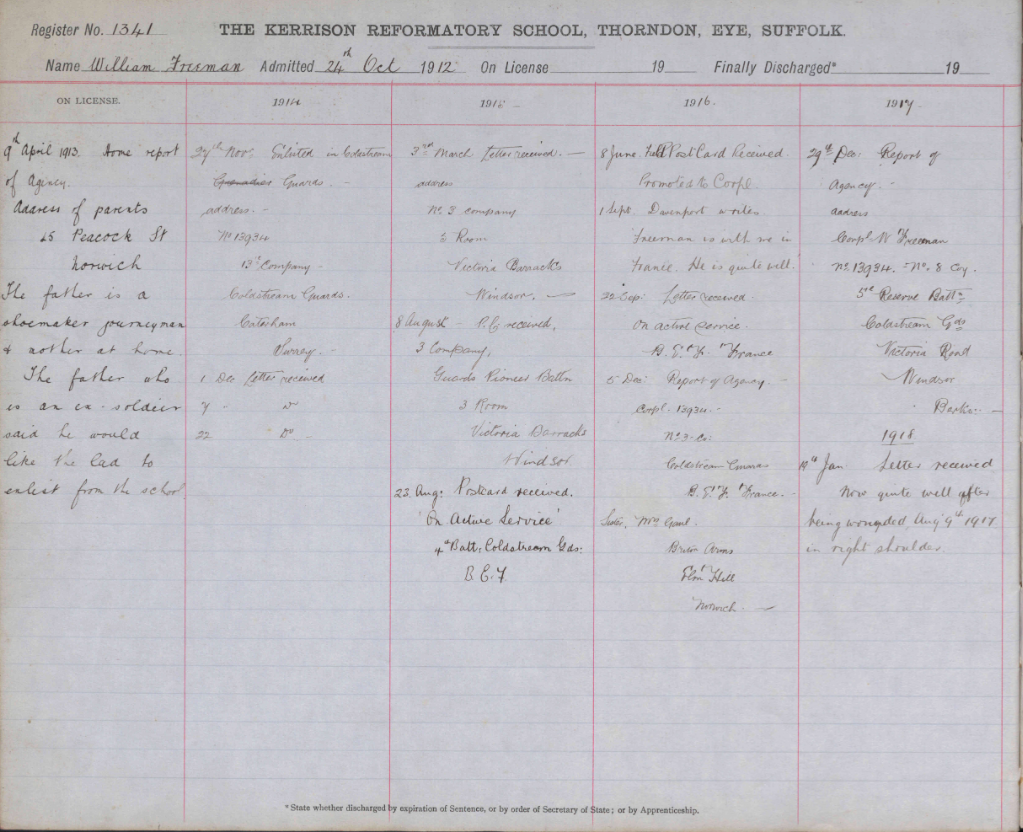 Register No. 1341
THE KERRISON REFORMATORY SCHOOL, THORNDON, EYE, SUFFOLK.
Name William Freeman Admitted 24th Oct 1912 On License 19 Finally Discharged* 19
ON LICENSE.
9th April 1913. Home report
of Agency.
Address of parents
25 Peacock St
Norwich
The father is a
shoemaker journeyman
& mother at home.
The father who
is an ex-soldier
said he would
like the lad to
enlist from the school
1914
27th Nov: Enlisted in Coldstream
Grenadier Guards. -
address. -
No 13934
13th Company -
Coldstream Guards.
Caterham
Surrey. -
1 Dec Letter received
7 - Do
22 Do
1915 -
3rd March Letter received. -
address
No. 3 Company
2 Room
Victoria Barracks
Windsor. -
8 August - P.C. received,
3 Company,
Guards Pioneer Battn
3 Room
Victoria Barracks
Windsor
23 Aug: Postcard received.
'On Active Service'
4th Batt: Coldstream Gds:
B.E.F
1916.
8 June. Field Post Card Received
Promoted to Corpl.
1 Sept. Davenport writes
Freeman is with me in
France. He is quite well.
22 Sep: Letter received
On active service.
B.E.F. France
5 Dec: Report of Agency. -
Corpl. 13934. -
No 3 - Co:
Coldstream Guards
B.E.F. France. -
Sister, Mrs
Arms
Hill
Norwich. -
1917
29th Dec: Report of
Agency. -
address
Corpl W Freeman
No. 13934. - No. 8 Coy.
5th Reserve Battn
Coldstream Gds
Victoria Road
Windsor
Berks: -
1918
19th Jan Letter received
Now quite well after
being wounded, Aug 9th 1917
in right shoulder
*State whether discharged by expiration of Sentence, or by order of Secretary of State; or by Apprenticeship.